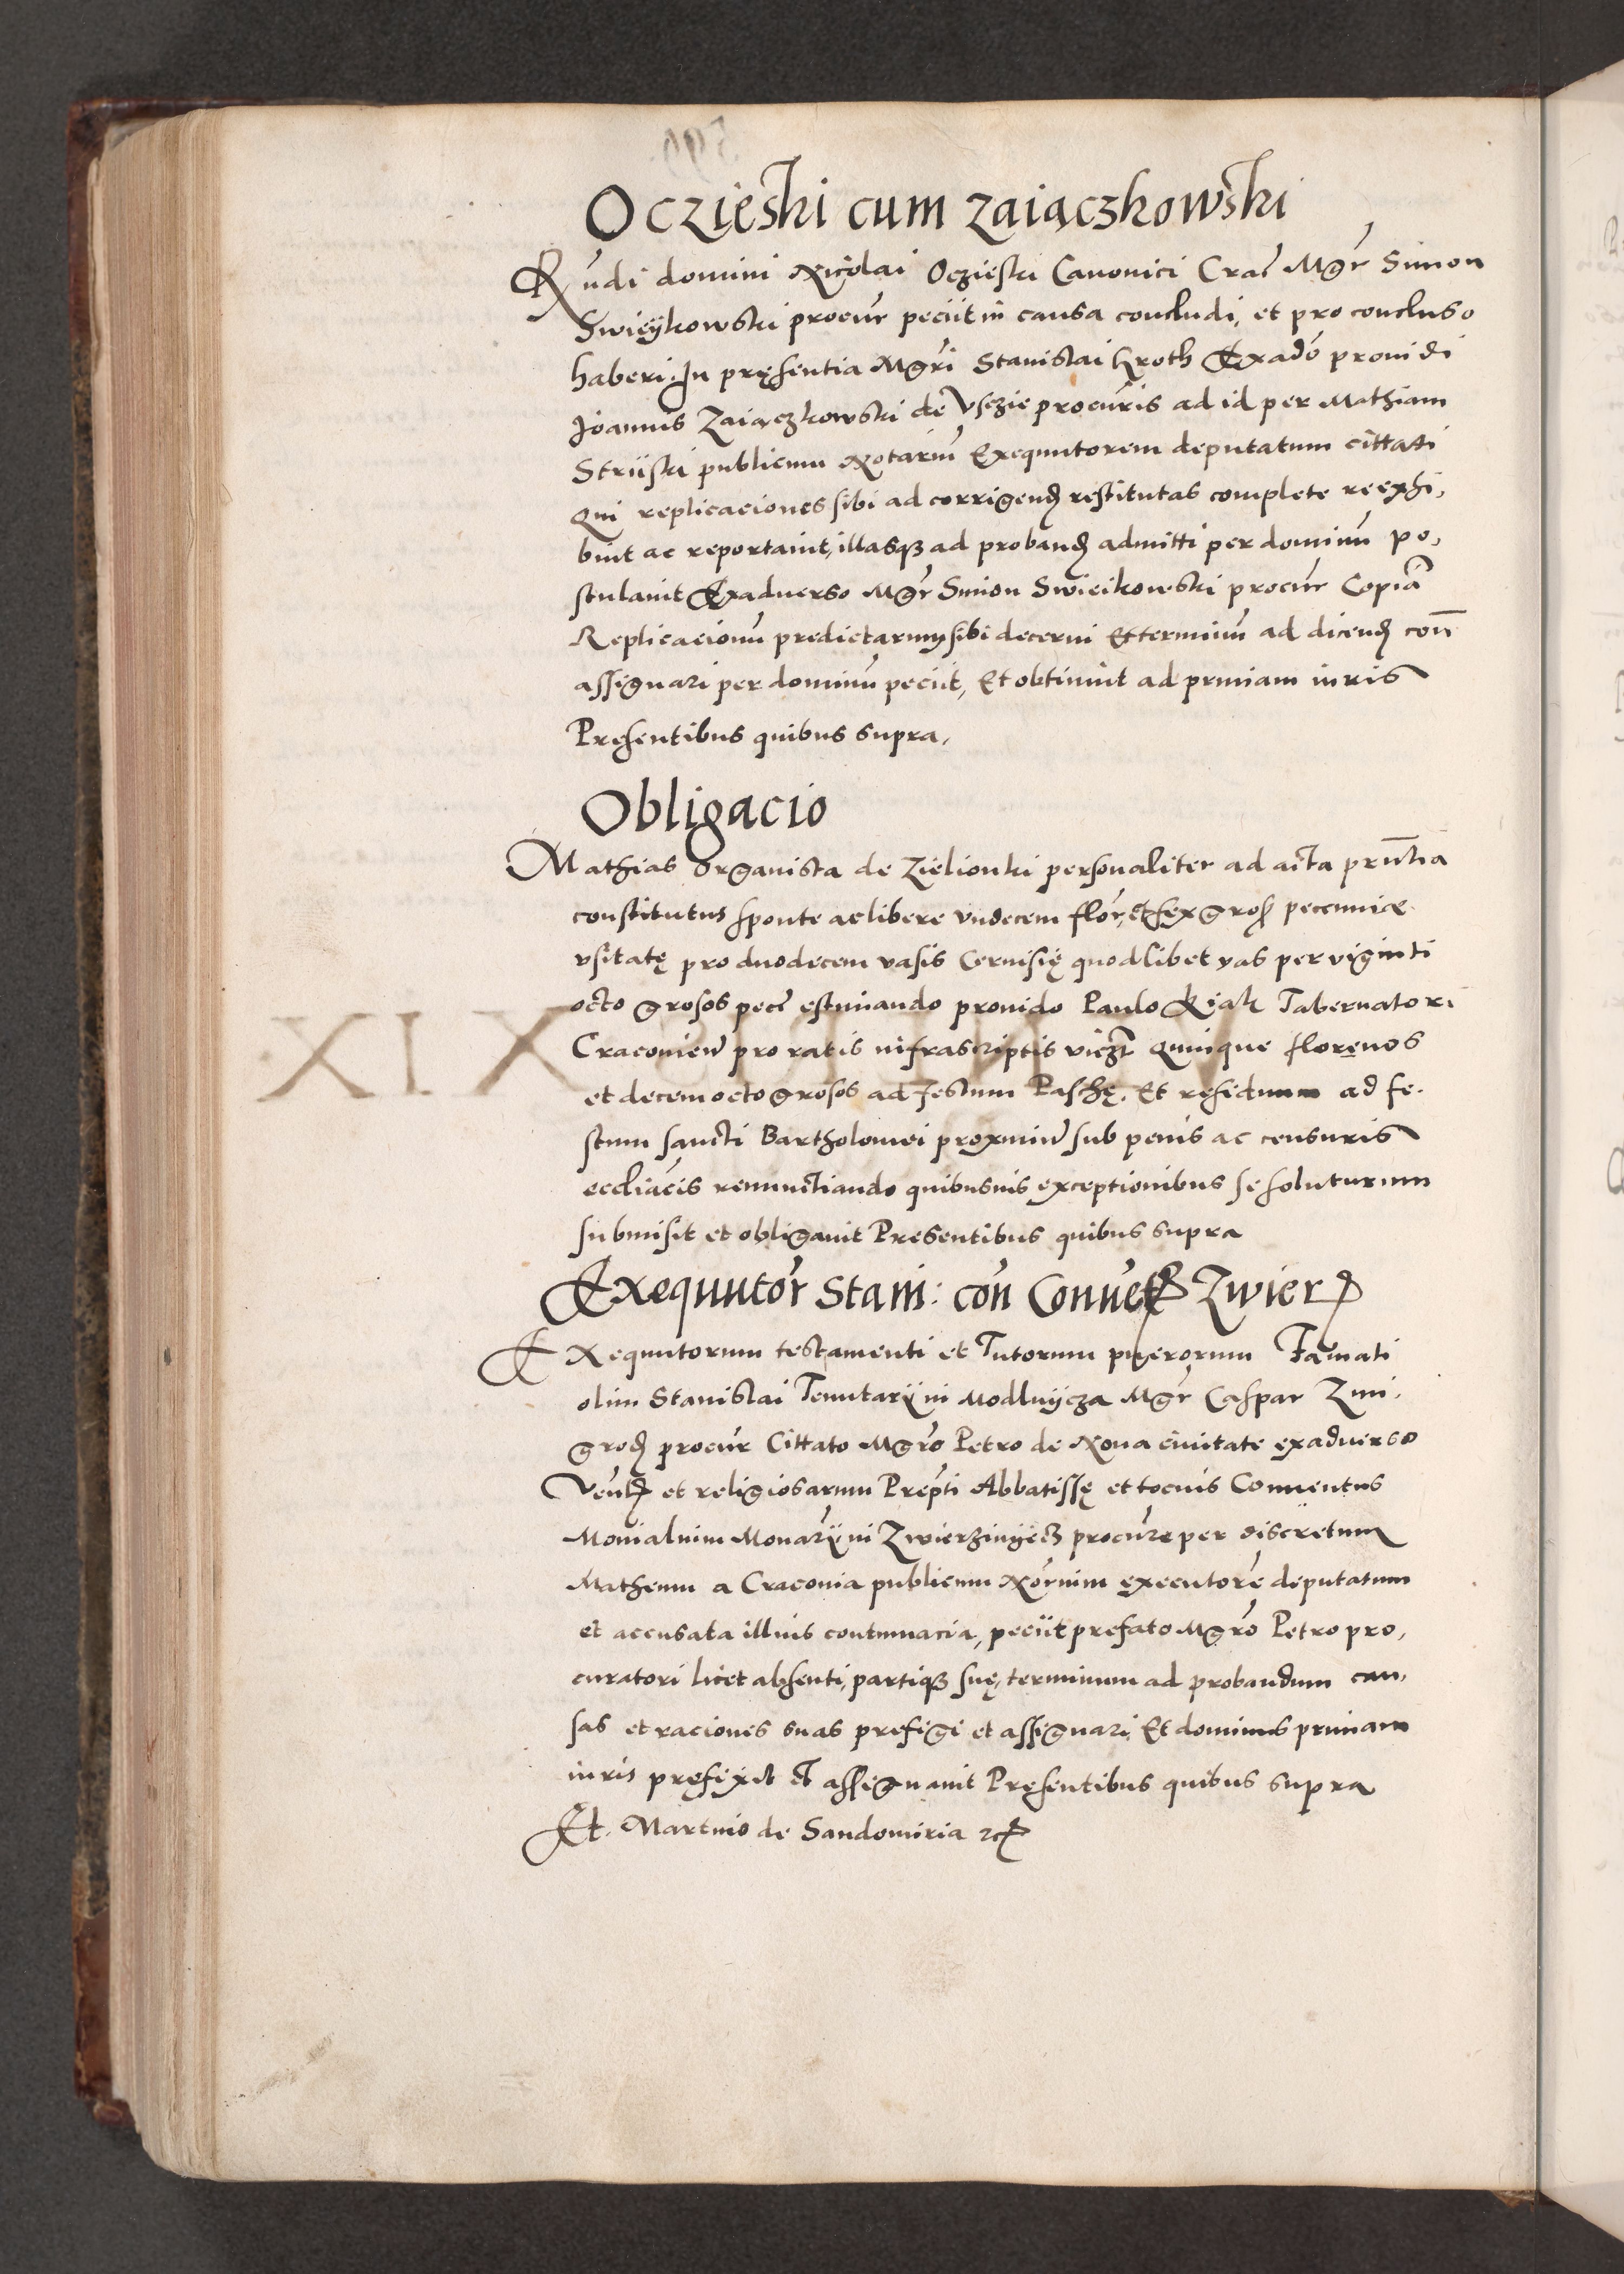 Oczięski cum Zaiączkowski
Rūdi domini Nicolai Oczieski Canonici Crac Mgr Simon
Swieykowski procur peciit in causa concludi, et pro concluso
haberi. In pręsentia Mgri Stanislai Kroth Exado prouidi
Joannis Zaiączkowski de Vsczie procuris ad id per Mathiam
Striiski publicum Notariū Exequutorem deputatum cittati
Qui replicaciones sibi ad corrigend restitutas complete reexhi,
buit ac reportauit, illasqz ad proband admitti per dominū po,
stulauit Exaduerso Mgr Simon Swieikowski procur Copiā
Replicacionū predictarum sibi decerni Et terminū ad dicend con
assignari per dominū peciit, Et obtinuit ad primam iuris
Pręsentibus quibus supra,
Obligacio
Mathias Organista de Zielionki personaliter ad acta prntia
constitutus sponte ac libere vndecem flor, et sex gros pecuniae
vsitatę pro duodecem vasis Ceruisię quodlibet vas per viginti
octo grosos pec estimando prouido Paulo Kiak Tabernatori
Cracouien pro ratis infrascriptis viczt Quinque florenos
et decem octo grosos ad festum Paschę. Et residuum ad fe.
stum sancti Bartholomei proximū sub penis ac censuris
eccliacis renunctiando quibusuis exceptionibus se soluturum
submisit et obligauit Presentibus quibus supra
Exequutor Stani: con Conuet Zwier
Exequutorum testamenti et Tutorum puerorum Famati
olim Stanislai Tenutarÿ in Modlnÿcza Mgr Caspar Zmi,
grod procur Cittato Mgro Petro de Noua ciuitate exaduerso
Venl et religiosarum Prepti Abbatissę et tocius Conuentus
Monialium Monarÿ in Zwierzinÿecz procure per discretum
Matheum a Cracouia publicum Norium executore deputatum
et accusata illius contumacia, peciit prefato Mgro Petro pro,
curatori licet absenti, partiqz suę, terminum ad probandum cau,
sas et raciones suas prefigi et assignari, Et dominus primam
iuris pręfixit et assignauit Pręsentibus quibus supra
Et Martino de Sandomiria etc